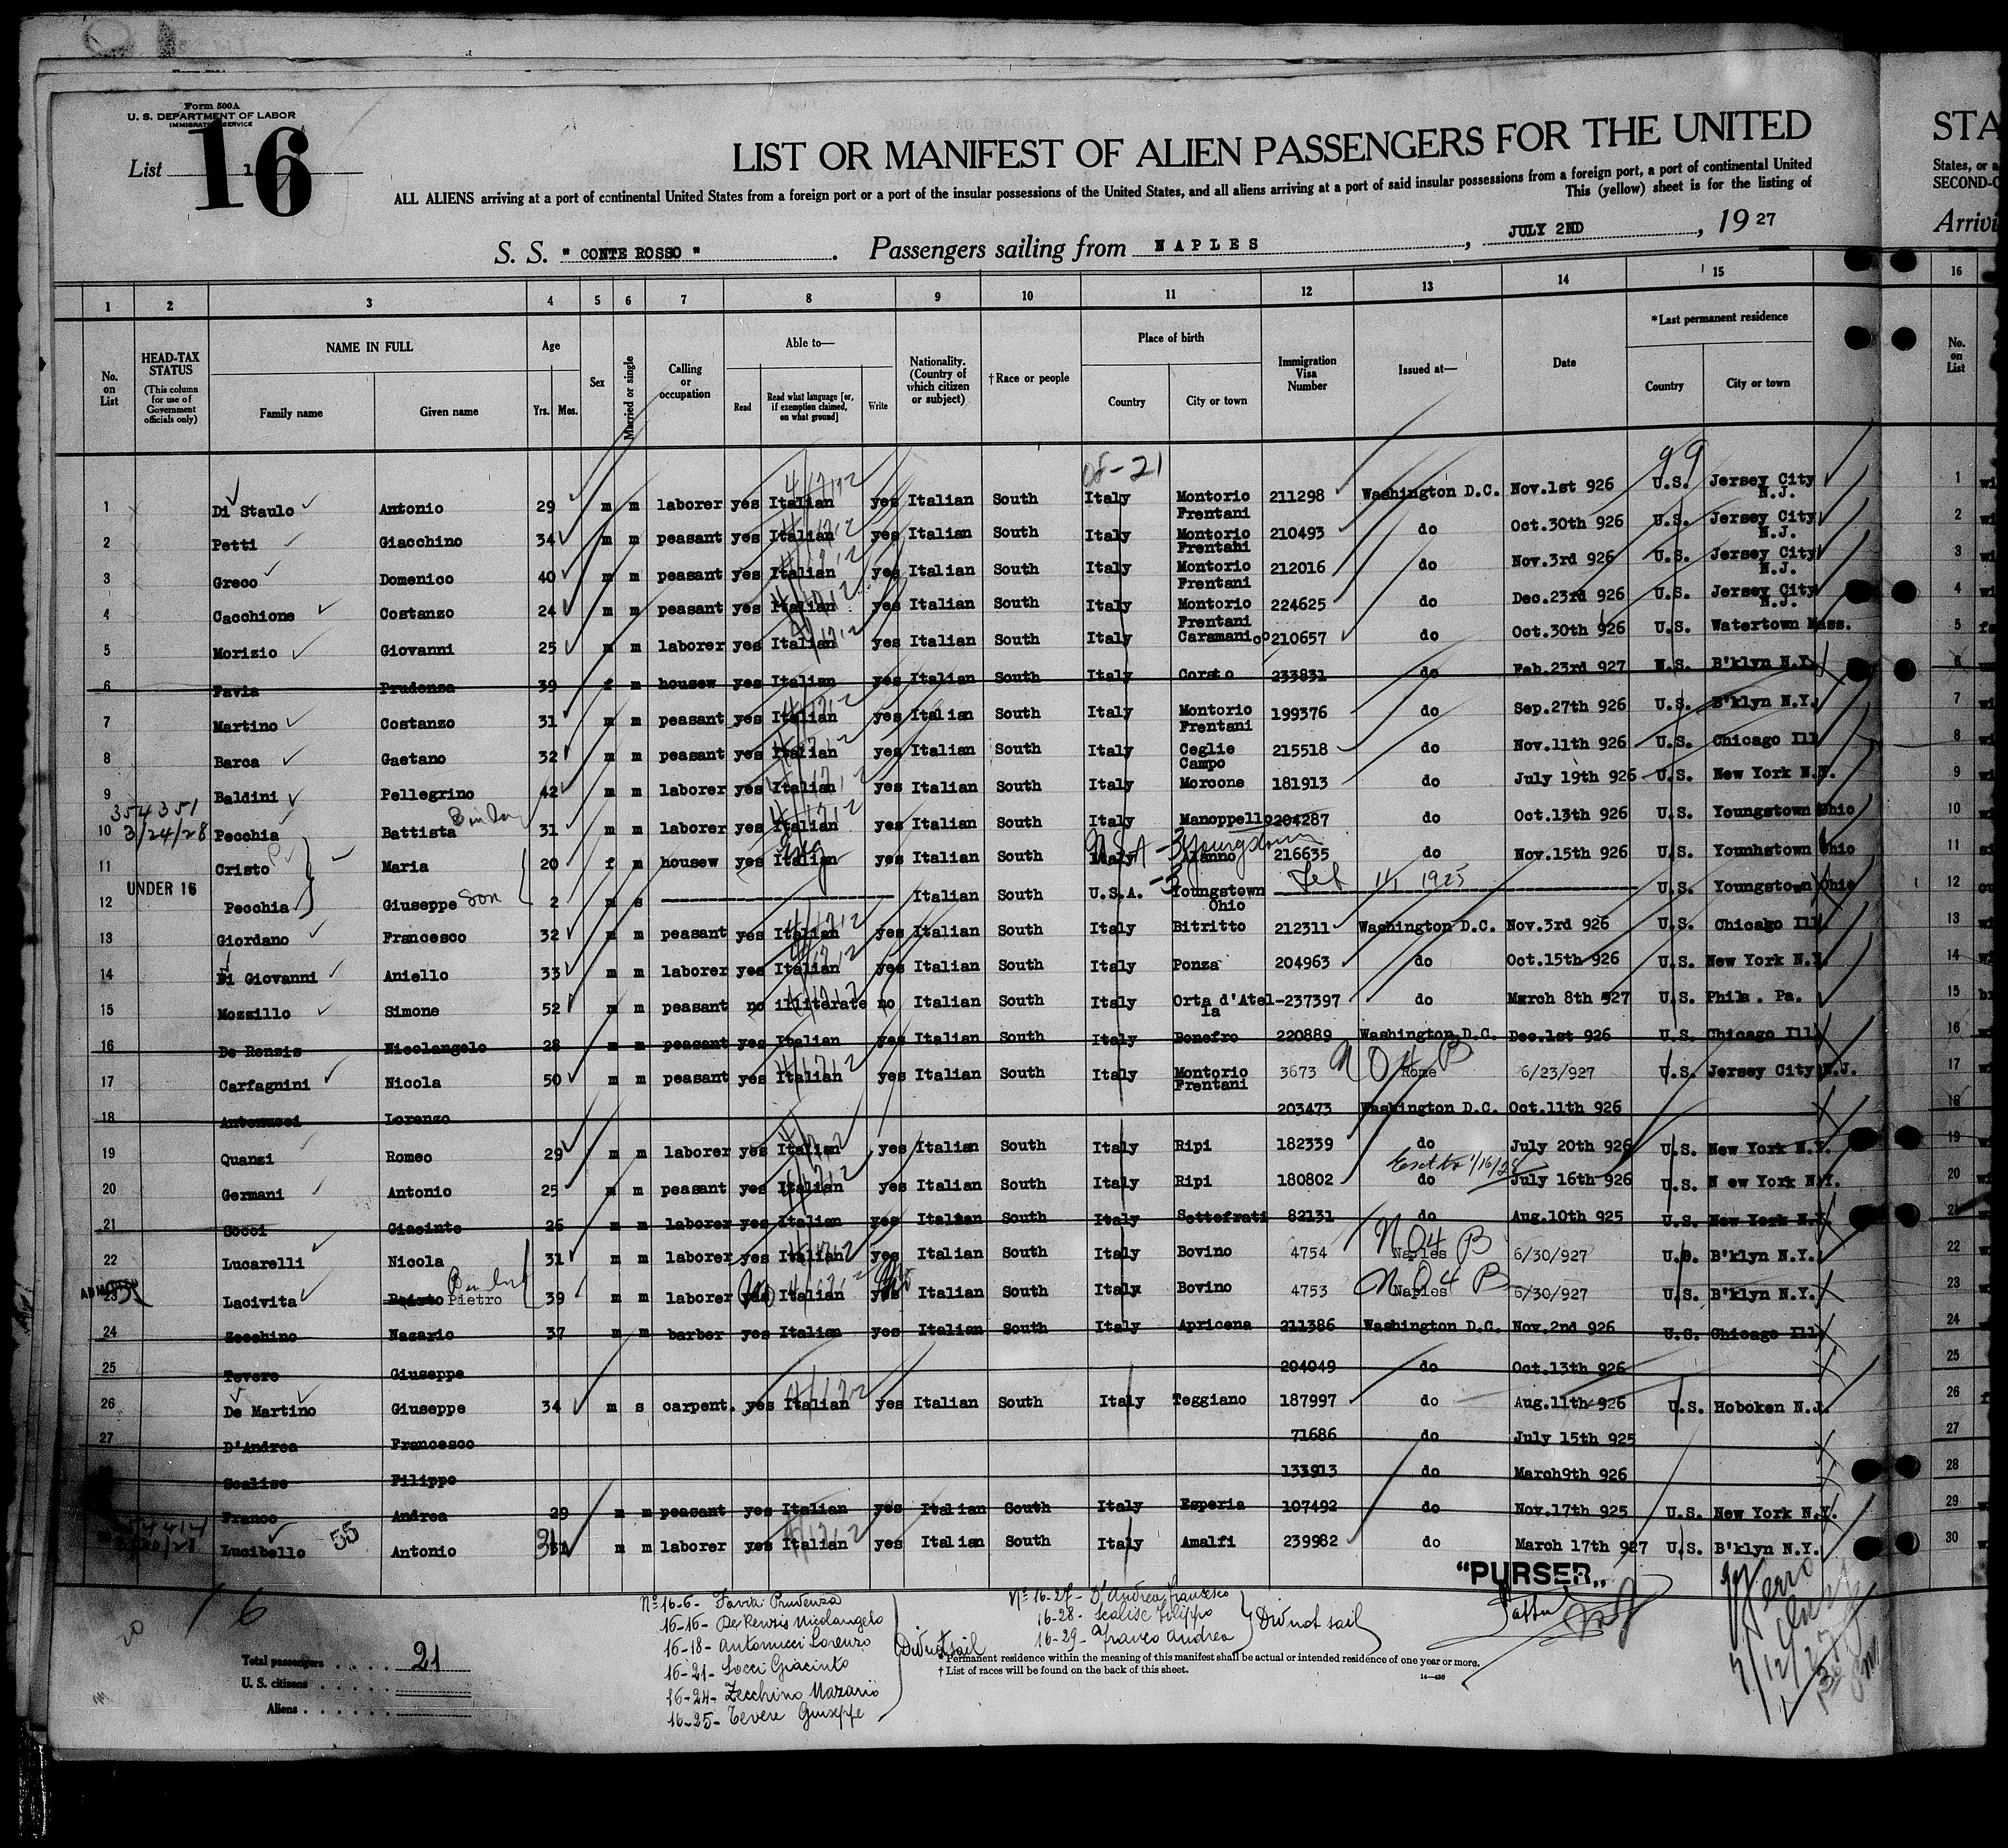 Form 500A
U. S. DEPARTMENT OF LABOR
IMMIGRATION SERVICE
List 1
16
LIST OR MANIFEST OF ALIEN PASSENGERS FOR THE UNITED
STA
ALL ALIENS arriving at a port of continental United States from a foreign port or a port of the insular possessions of the United States, and all aliens arriving at a port of said insular possessions from a foreign port, a port of continental United
States, or a
This (yellow) sheet is for the listing of
SECOND-C
S. S. " CONTE ROSSO " . Passengers sailing from NAPLES , JULY 2ND , 19 27
Arrivi
1 2 3 4 5 6 7 8 9 10 11 12 13 14 15 16
No. on List
HEAD-TAX STATUS (This column for use of Government officials only)
NAME IN FULL Family name Given name
Age Yrs. Mos.
Sex
Married or single
Calling or occupation
Able to— Read Read what language [or, if exemption claimed, on what ground] Write
Nationality. (Country of which citizen or subject)
†Race or people
Place of birth Country City or town
Immigration Visa Number
Issued at—
Date
*Last permanent residence Country City or town
No. on List
99
1 Di Staulo Antonio 29 m m laborer yes Italian yes Italian South Italy Montorio Frentani 211298 Washington D.C. Nov.1st 926 U.S. Jersey City N.J. 1
2 Petti Giacchino 34 m m peasant yes Italian yes Italian South Italy Montorio Frentani 210493 do Oct.30th 926 U.S. Jersey City N.J. 2
3 Greco Domenico 40 m m peasant yes Italian yes Italian South Italy Montorio Frentani 212016 do Nov.3rd 926 U.S. Jersey City N.J. 3
4 Cacchione Costanzo 24 m m peasant yes Italian yes Italian South Italy Montorio Frentani 224625 do Dec.23rd 926 U.S. Jersey City N.J. 4
5 Morizio Giovanni 25 m m laborer yes Italian yes Italian South Italy Caramanico 210657 do Oct.30th 926 U.S. Watertown Mass. 5
6 Favia Prudenza 39 f m housew yes Italian yes Italian South Italy Corato 233831 do Feb.23rd 927 U.S. B'klyn N.Y. 6
7 Martino Costanzo 31 m m peasant yes Italian yes Italian South Italy Montorio Frentani 199376 do Sep.27th 926 U.S. B'klyn N.Y. 7
8 Barca Gaetano 32 m m peasant yes Italian yes Italian South Italy Ceglie Campo 215518 do Nov.11th 926 U.S. Chicago Ill 8
9 Baldini Pellegrino 42 m m laborer yes Italian yes Italian South Italy Morcone 181913 do July 19th 926 U.S. New York N.Y. 9
354351
3/24/28
10 Pecchia Battista 31 m m laborer yes Italian yes Italian South Italy Manoppello 204287 do Oct.13th 926 U.S. Youngstown Ohio 10
Eng Youngstown
11 Cristo Maria 20 f m housew yes Italian yes Italian South Italy Alanno 216635 do Nov.15th 926 U.S. Younhstown Ohio 11
UNDER 16
12 Pecchia Giuseppe son 2 m s Italian South U.S.A. Youngstown Ohio 1925 U.S. Youngstown Ohio 12
13 Giordano Francesco 32 m m peasant yes Italian yes Italian South Italy Bitritto 212311 Washington D.C. Nov.3rd 926 U.S. Chicago Ill 13
14 Di Giovanni Aniello 33 m m laborer yes Italian yes Italian South Italy Ponza 204963 do Oct.15th 926 U.S. New York N.Y 14
15 Mozzillo Simone 52 m m peasant no illiterate no Italian South Italy Orta d'Atel-la 237397 do March 8th 927 U.S. Phila. Pa. 15
16 De Rensis Nicolangelo 28 m m peasant yes Italian yes Italian South Italy Bonefro 220889 Washington D.C. Dec.1st 926 U.S. Chicago Ill 16
17 Carfagnini Nicola 50 m m peasant yes Italian yes Italian South Italy Montorio Frentani 3673 Rome 6/23/927 U.S. Jersey City N.J. 17
18 Antonucci Lorenzo 203473 Washington D.C. Oct.11th 926 18
19 Quanzi Romeo 29 m m laborer yes Italian yes Italian South Italy Ripi 182339 do July 20th 926 U.S. New York N.Y. 19
20 Germani Antonio 25 m m peasant yes Italian yes Italian South Italy Ripi 180802 do July 16th 926 U.S. N ew York N.Y. 20
21 Socci Giacinto 26 m m laborer yes Italian yes Italian South Italy Settefrati 82131 do Aug.10th 925 U.S. New York N.Y. 21
22 Lucarelli Nicola 31 m m laborer yes Italian yes Italian South Italy Bovino 4754 Naples NO4 B 6/30/927 U.S. B'klyn N.Y. 22
23 Lacivita Pietro 39 m m laborer No Italian Italian South Italy Bovino 4753 Naples NO4 B 6/30/927 U.S. B'klyn N.Y. 23
24 Zecchino Nazario 37 m m barber yes Italian yes Italian South Italy Apricena 211386 Washington D.C. Nov.2nd 926 U.S. Chicago Ill 24
25 Tevere Giuseppe 204049 do Oct.13th 926 25
26 De Martino Giuseppe 34 m s carpent. yes Italian yes Italian South Italy Teggiano 187997 do Aug.11th 926 U.S. Hoboken N.J. 26
27 D'Andrea Francesco 71686 do July 15th 925 27
Scalise Filippo 133913 do March9th 926 28
Franco Andrea 29 m m peasant yes Italian yes Italian South Italy Esperia 107492 do Nov.17th 925 U.S. New York N.Y. 29
Lucibello 55 Antonio 31 m m laborer yes Italian yes Italian South Italy Amalfi 239982 do March 17th 927 U.S. B'klyn N.Y. 30
"PURSER"
16
Total passengers 21
U. S. citizens
Aliens
Nº 16-6- Favia Prudenza
16-16- De Renzis Nicolangelo
16-18- Antonucci Lorenzo
16-21- Socci Giacinto
16-24- Zecchino Nazario
16-25- Tevere Guiseppe
Did not sail
Nº 16-27- D'Andrea Francesco
16-28- Scalise Filippo
16-29- Franco Andrea
Did not sail
* Permanent residence within the meaning of this manifest shall be actual or intended residence of one year or more.
† List of races will be found on the back of this sheet.
14—436